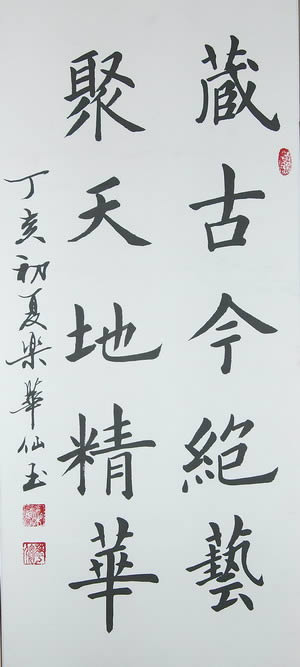 蔵古今絕藝
聚天地精華
丁亥初夏樂華仙玉